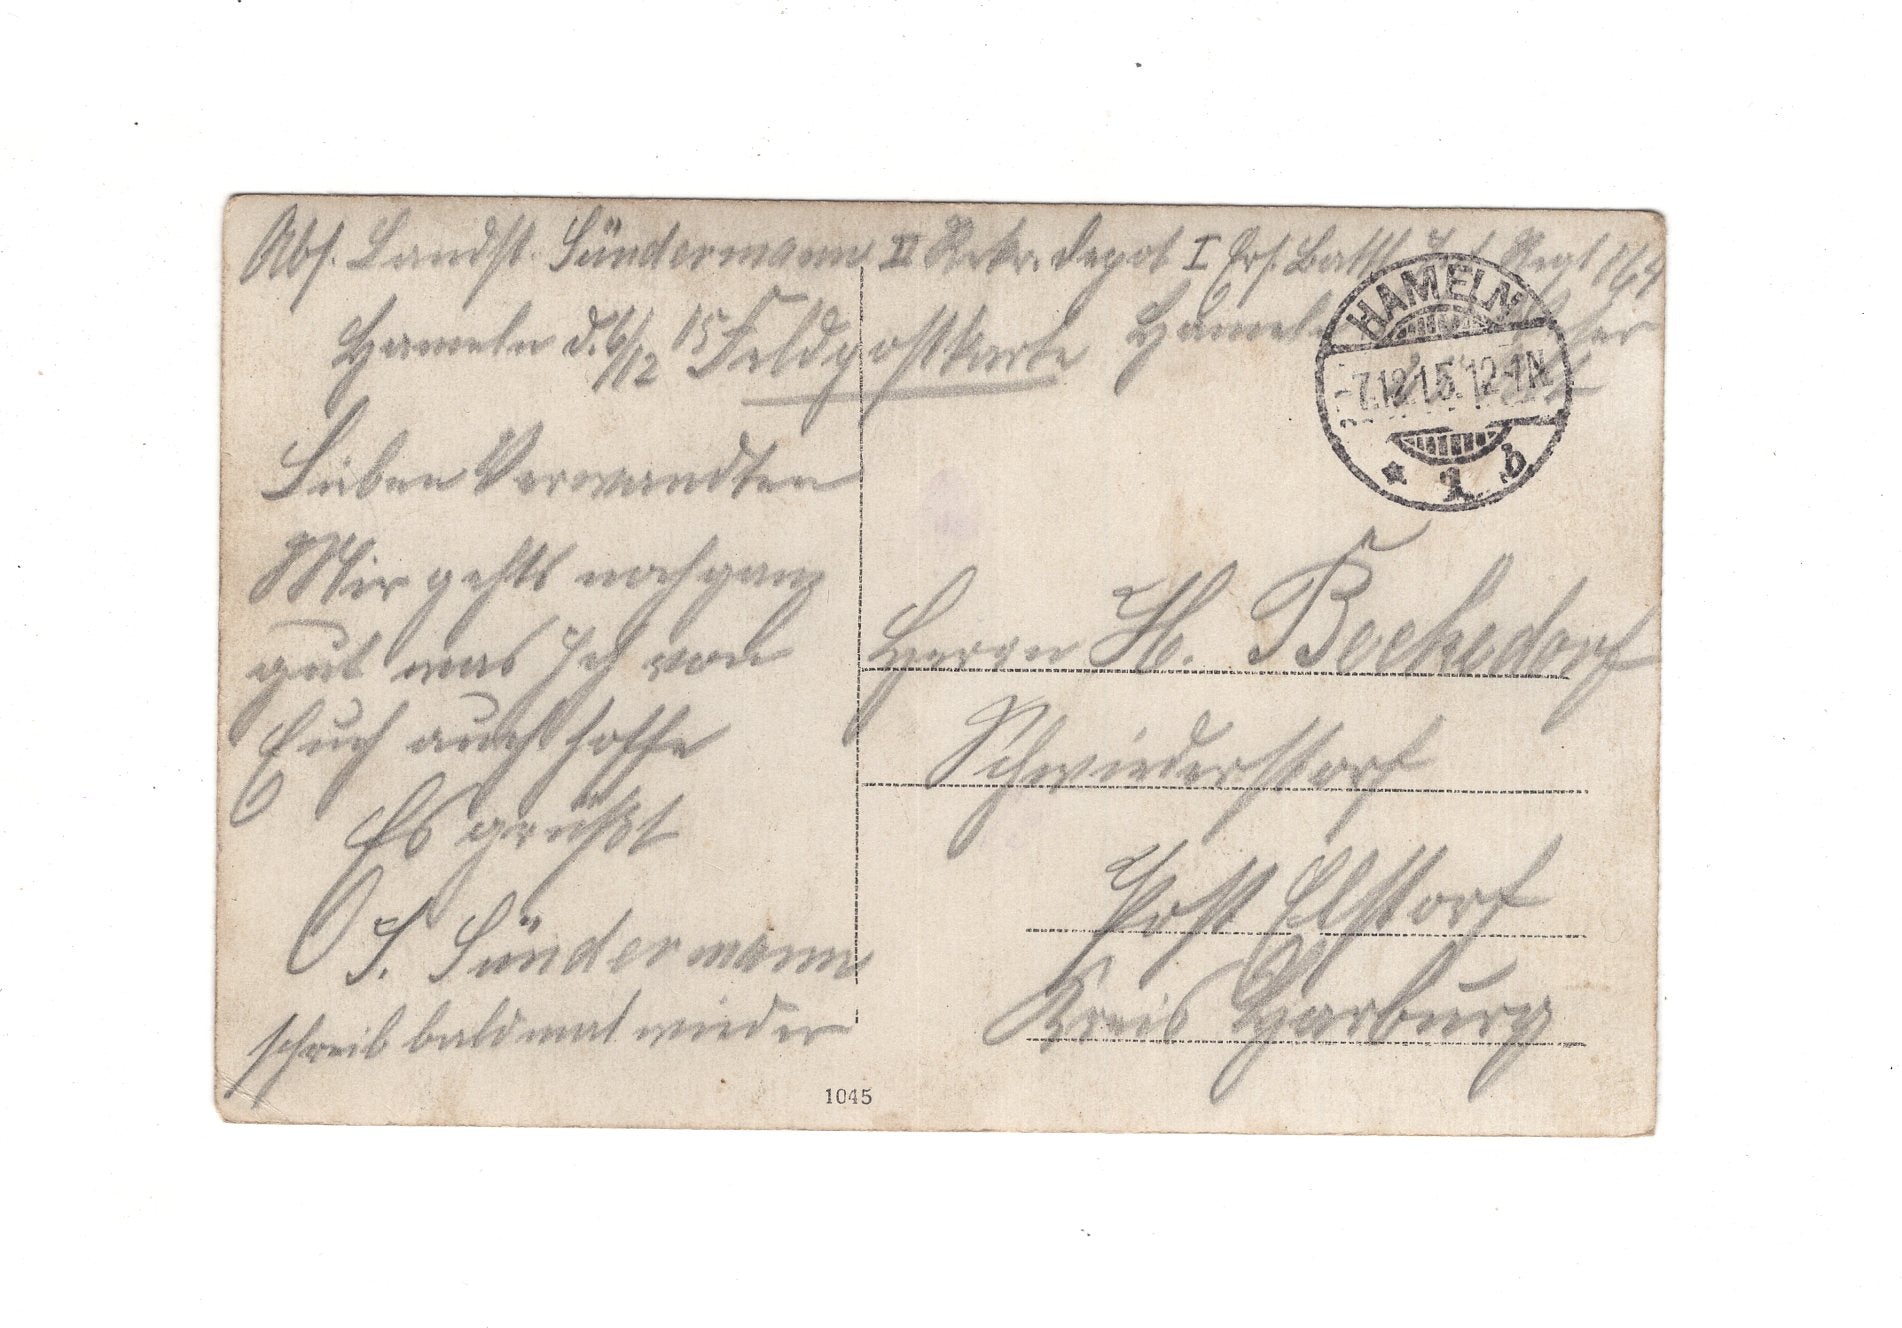 Abs. Landst. Sündermann II Rekr. Depot I Ers. Batl. Inf. Regt 164
Hameln d. 6/12 15 Feldpostkarte Hameln
HAMELN
-7.12.15.12-1N
* 1 b
Lieben Verwandten
Mir gehts noch ganz
gut was Ich von
Euch auch hoffe
Es grüßt
S. Sündermann
schreib bald mal wieder
Herrn H. Beckedorf
Schwiederstorf
Post Elstorf
Kreis Harburg
1045